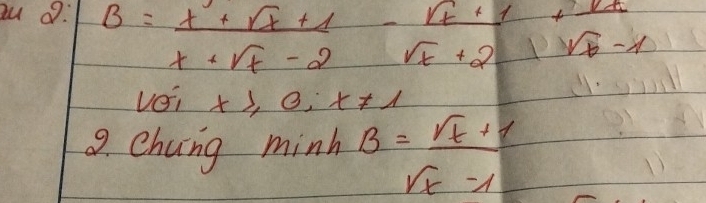 2: B = (x + √x + 1)/(x + √x - 2) - (√x + 1)/(√x + 2) + √x/(√x - 1)
với x ≥ 0; x ≠ 1
2. Chứng minh B = (√x + 1)/(√x - 1)